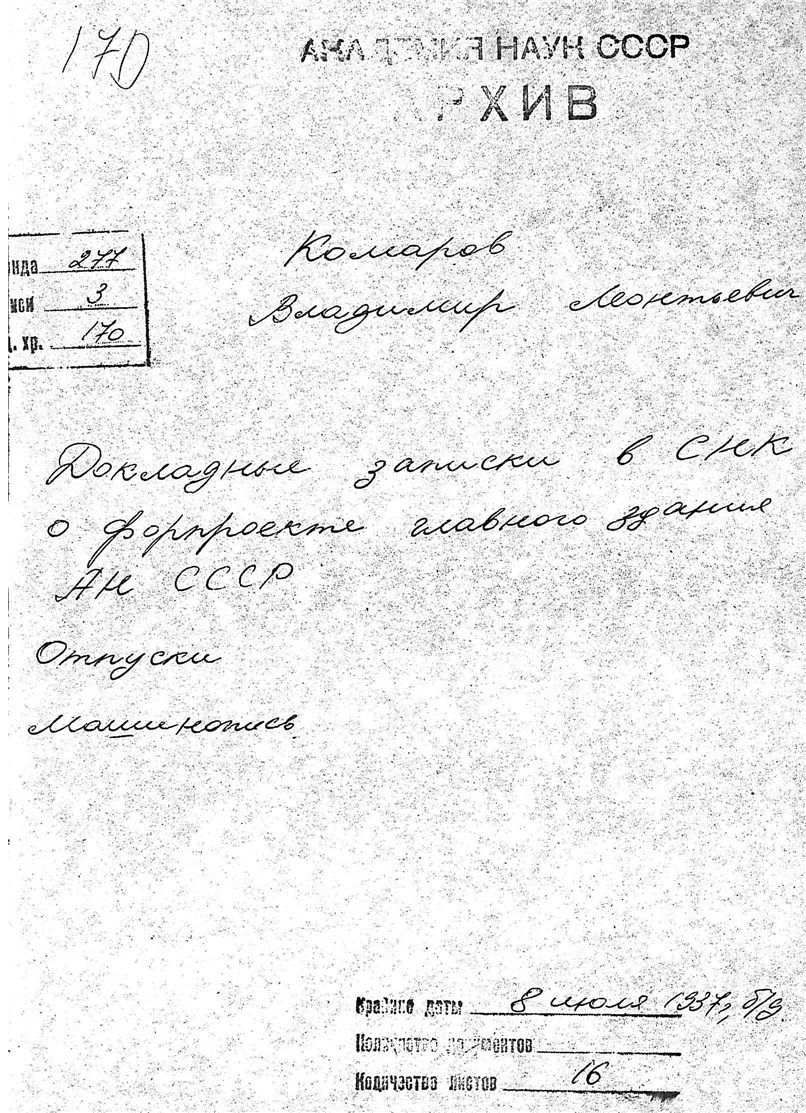 170
АКАДЕМИЯ НАУК СССР
АРХИВ
нда 277
иси 3
д. хр. 170
Комаров
Владимир Леонтьевич
Докладные записки в СНК
о форпроекте главного здания
АН СССР
Отпуски
Машинопись
Крайние даты 8 июля 1937, б/д.
Количество документов
Количество листов 16